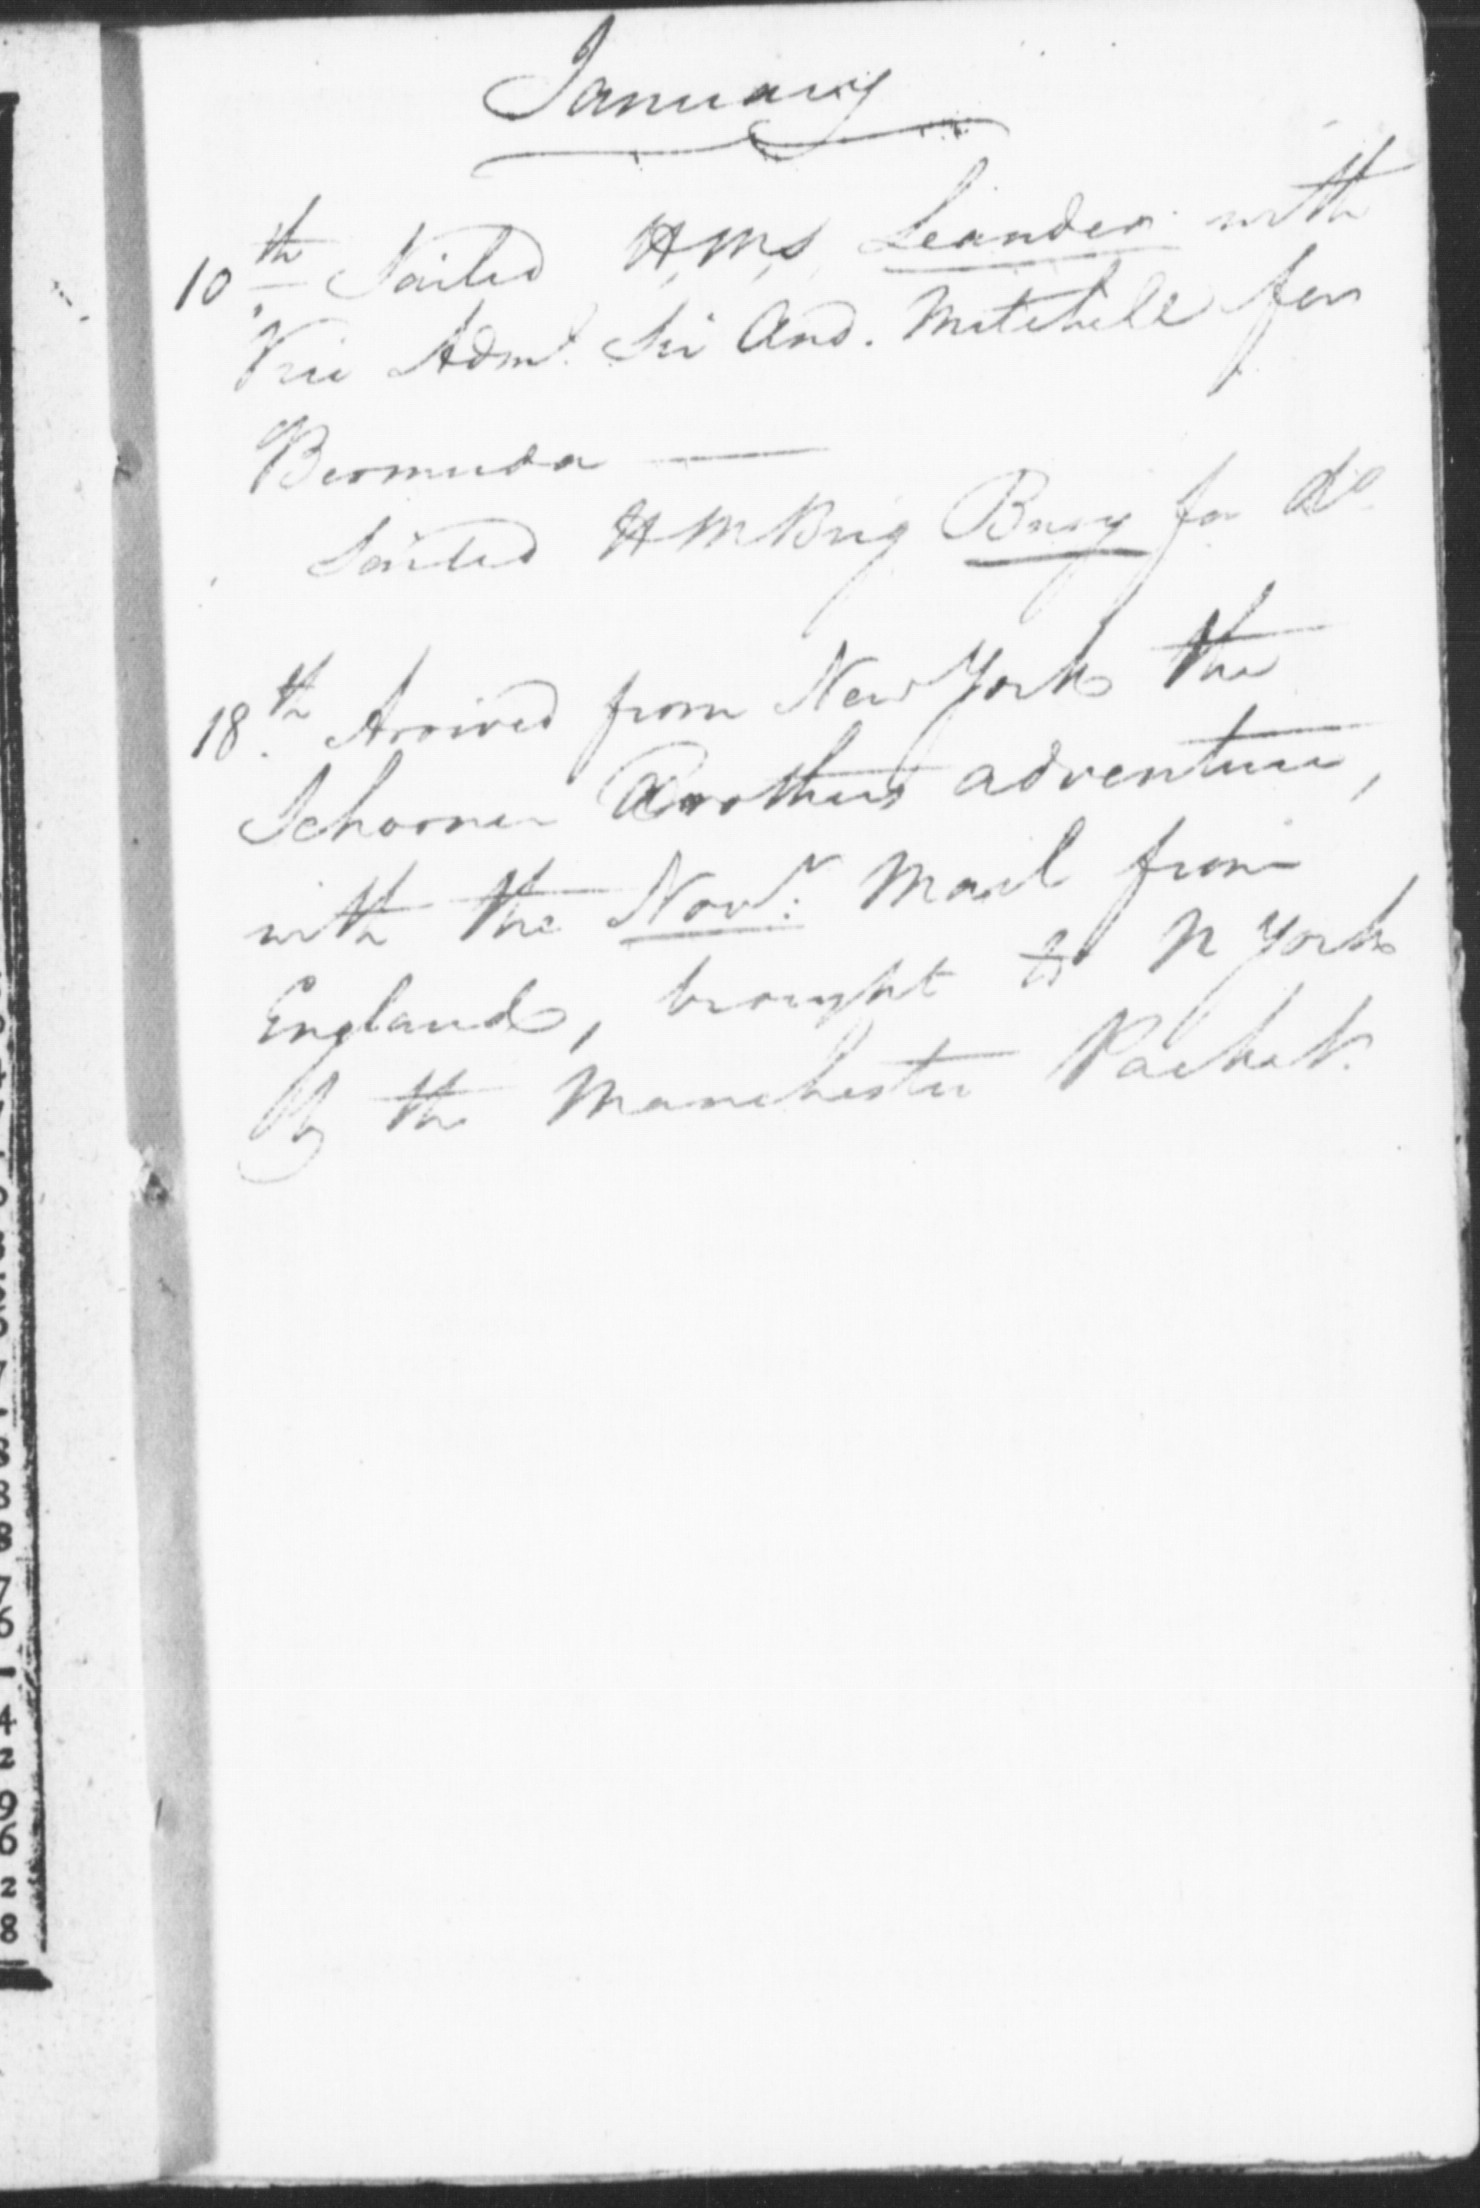 January
10th Sailed H.M.S. Leander with
Vice Adml. Sir And. Mitchell for
Bermuda —
Sailed H M Brig Busy for Do
18th Arrived from New York the
Schooner Brothers adventure,
with the Novr. Mail from
England, brought to N York
By the Manchester Packet.
7
8
8
7
6
1
4
2
9
6
2
8